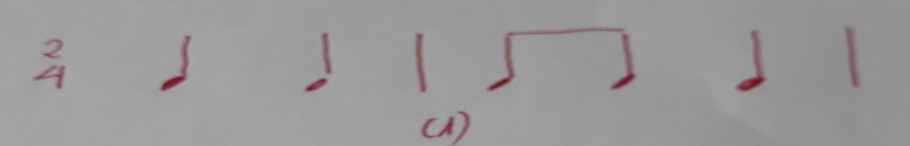 2
4
(1)